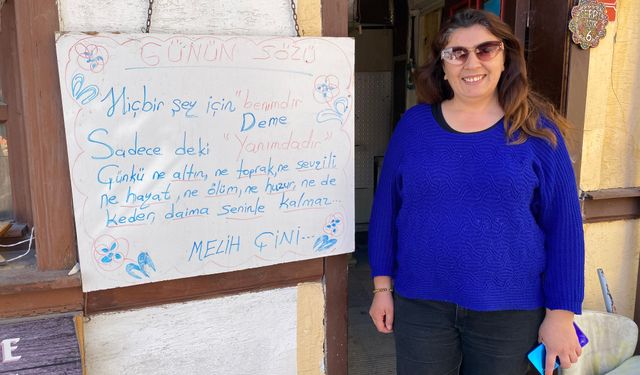 GÜNÜN SÖZÜ
Hiçbir şey için "benimdir"
Deme
Sadece deki "Yanımdadır"
Günkü ne altın, ne toprak, ne sevgili
ne hayat, ne ölüm, ne huzur, ne de
keder, daima seninle kalmaz...
MELİH ÇİNİ...
6
e